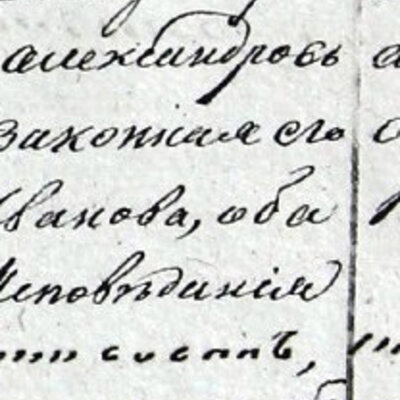 александровъ
законная его
Иванова, оба
исповѣданія